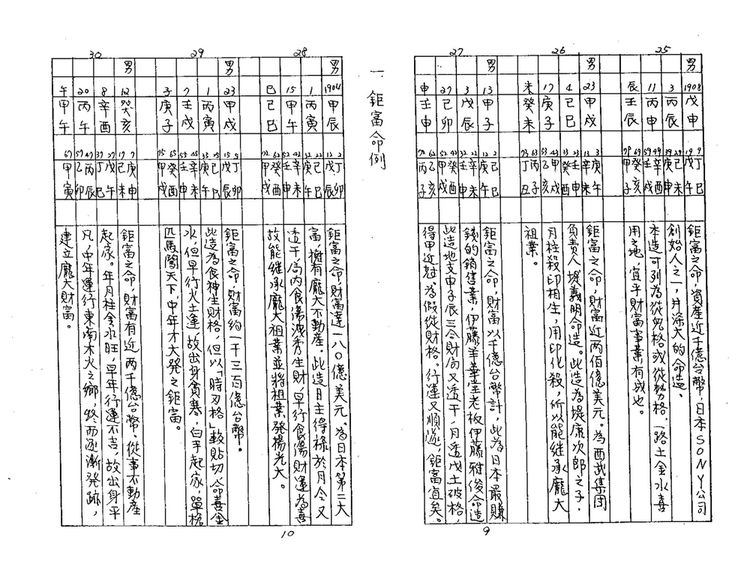 一 鉅富命例
25
男
1908 戊申
3 丙辰
11 丙申
辰 壬辰
鉅富之命,資產近千億台幣,日本SONY公司
創始人之一,井深大的命造。
本造可列為從兒格或從勢格,一路土金水喜
用之地,宜乎財富事業有成也。
26
男
23 甲戌
4 己巳
17 庚子
未 癸未
鉅富之命,財富近兩佰億美元。為西武集團
負責人堤義明命造。此造為堤康次郎之子,
月柱殺印相生,用印化殺,所以能繼承龐大
祖業。
27
男
13 甲子
3 戊辰
27 己卯
申 壬申
鉅富之命,財富以千億台幣計,此為日本最賺
錢的銷售業,伊藤羊華堂老板伊藤雅俊命造
此造地支申子辰三合財局又透干,月透戊土破格,
得甲近剋為假從財格。行運又順遂,鉅富宜矣。
9
28
男
1904 甲辰
1 丙寅
15 甲午
巳 己巳
鉅富之命財富達一八〇億美元。為日本第二大
富,擁有龐大不動產。此造日主得祿於月令又
透干,局內食傷洩秀生財,早行食傷財運為喜
故能繼承龐大祖業並將祖業發揚光大。
29
男
23 甲戌
1 丙寅
7 壬戌
子 庚子
鉅富之命,財富約一千三百億台幣。
此造為食神生財格,但以「時刃格」較貼切,命喜金
水,但早行火土運,故出身貧寒,白手起家,單槍
匹馬闖天下,中年才大發之鉅富。
30
男
12 癸亥
8 辛酉
20 丙午
午 甲午
鉅富之命,財富有近兩千億台幣,從事不動產
起家。年月柱金水旺,早年行運不吉,故出身平
凡,中年運行東南木火之鄉,終而逐漸發跡,
建立龐大財富。
10